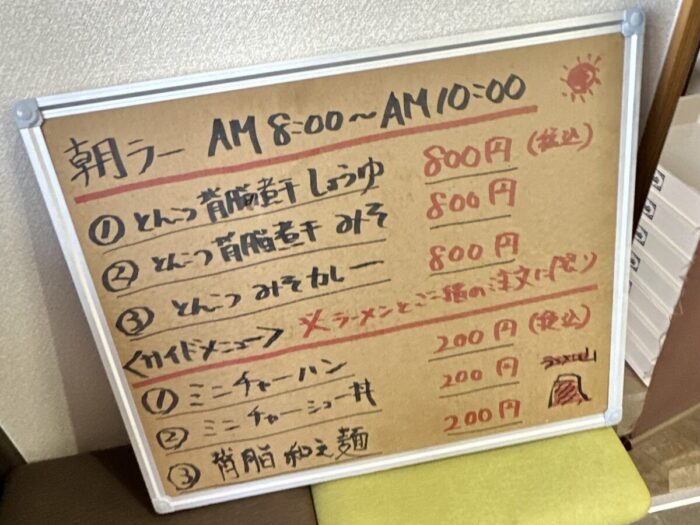 朝ラー AM 8:00～AM10:00
① とんこつ背脂煮干しょうゆ 800円 (税込)
② とんこつ背脂煮干 みそ 800円
③ とんこつ みそカレー 800円
<サイドメニュー> ※ラーメンとご一緒の注文に限り
① ミニチャーハン 200円 (税込)
② ミニチャーシュー丼 200円
③ 背脂和え麺 200円